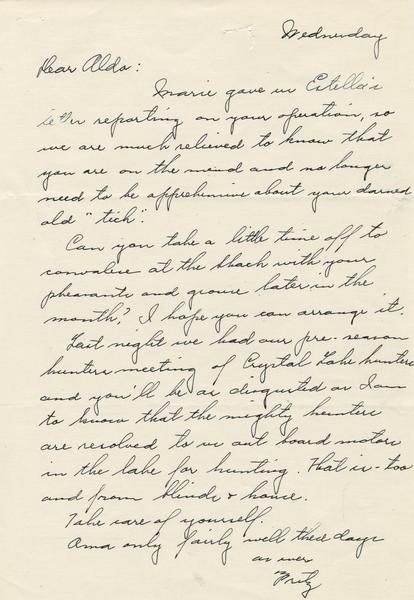 Wednesday
Dear Aldo:
Marie gave us Estella's
letter reporting on your operation, so
we are much relieved to know that
you are on the mend and no longer
need to be apprehensive about your darned
old "tick".
Can you take a little time off to
convalesce at the Shack with your
pheasants and grouse later in the
month? I hope you can arrange it.
Last night we had our pre-season
hunters meeting of Crystal Lake hunters
and you'll be as disgusted as I am
to know that the mighty hunters
are resolved to use out board motors
in the lake for hunting. That is - to
and from blinds & home.
Take care of yourself.
Ama only fairly well these days
as ever
Fritz